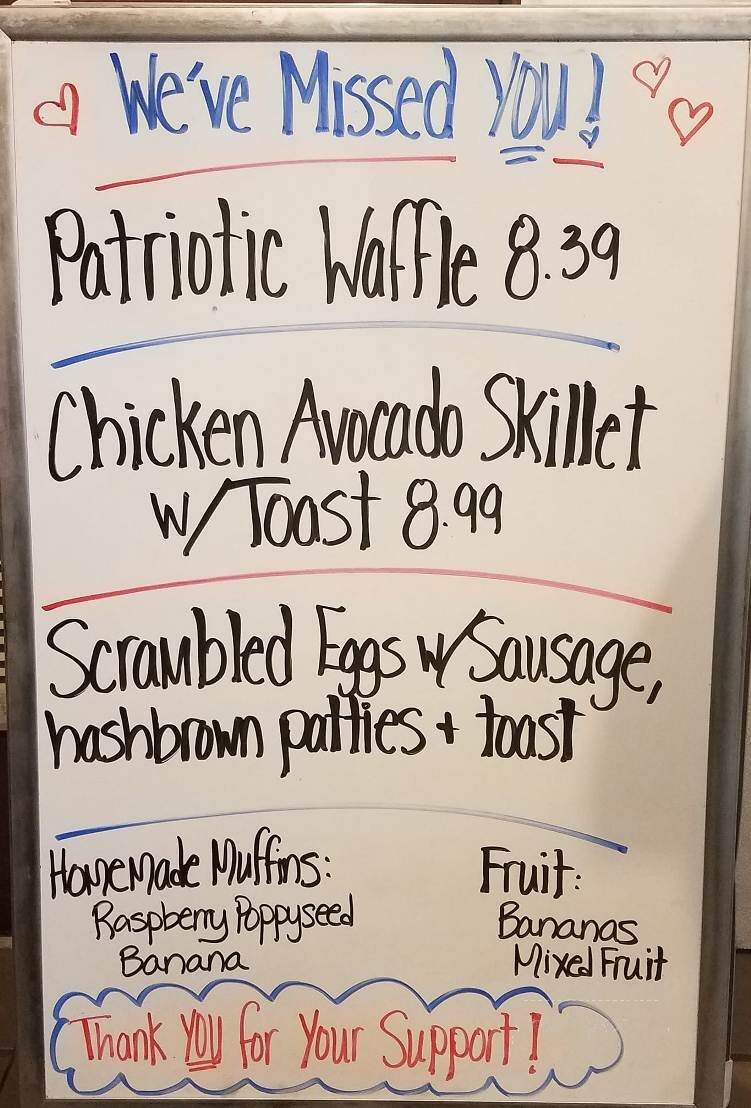 We've Missed YOU!
Patriotic Waffle 8.39
Chicken Avocado Skillet
w/Toast 8.99
Scrambled Eggs w/Sausage,
hashbrown patties + toast
Homemade Muffins:
Raspberry Poppyseed
Banana
Fruit:
Bananas
Mixed Fruit
Thank YOU for Your Support!